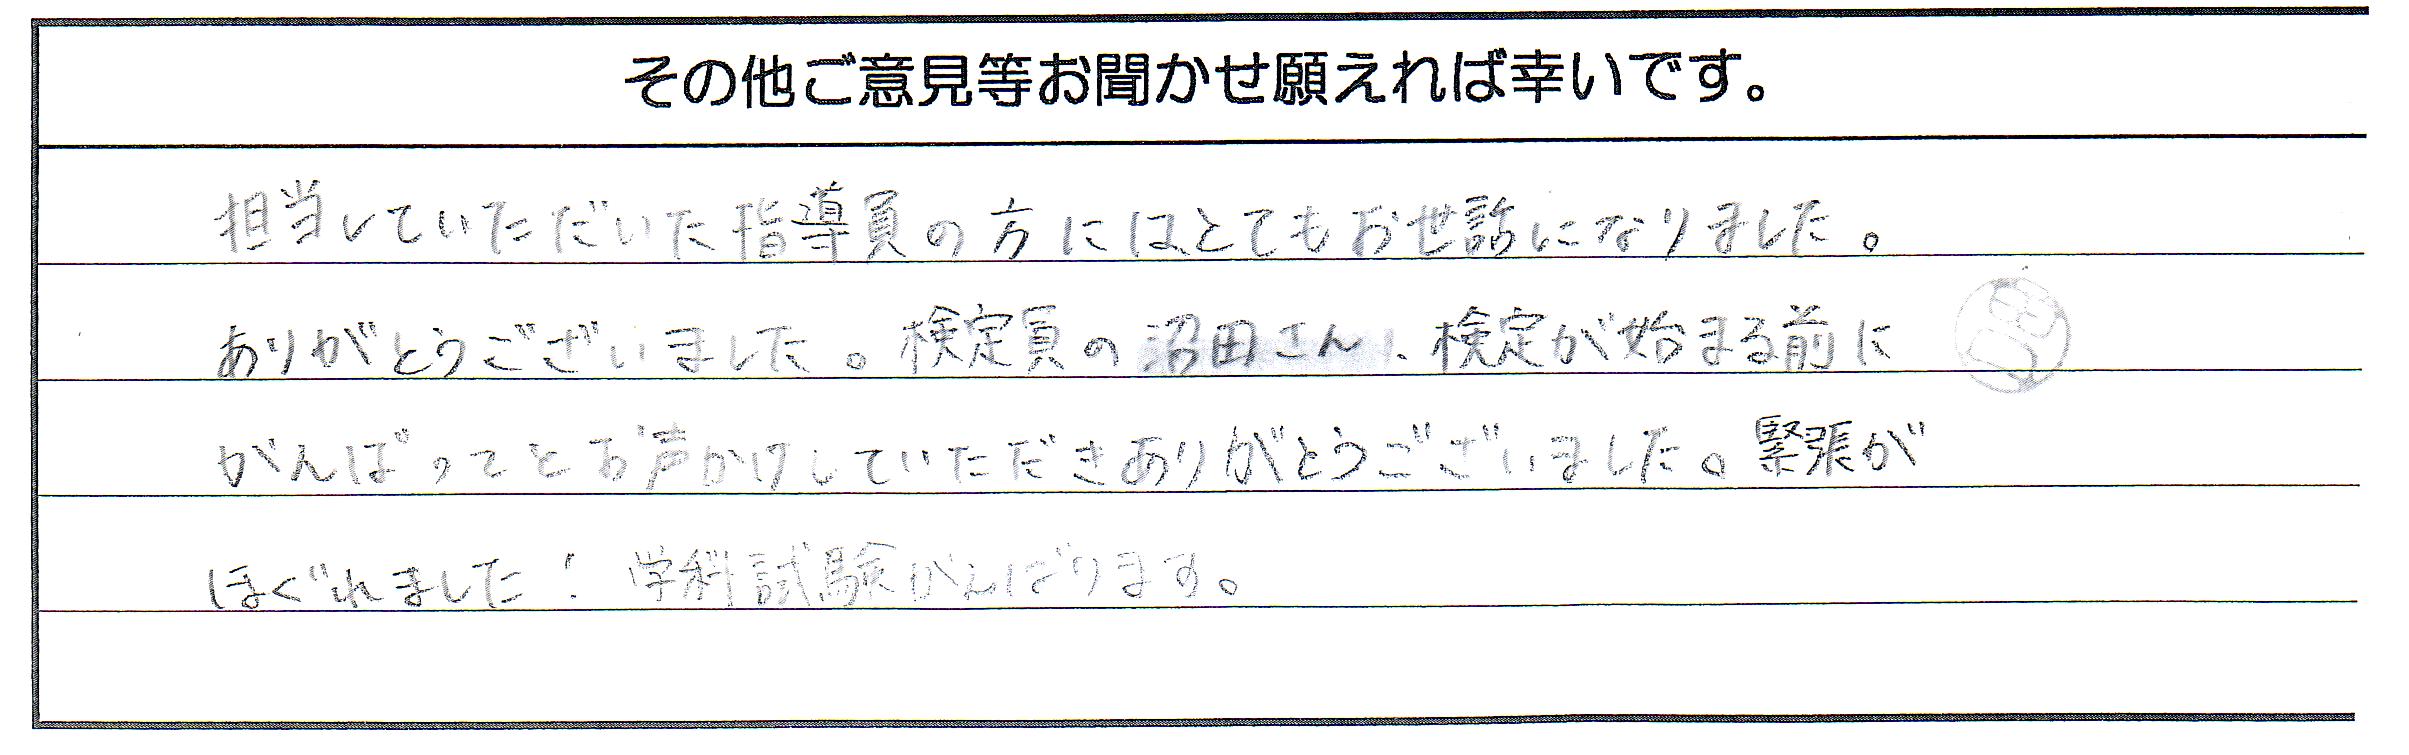 その他ご意見等お聞かせ願えれば幸いです。
担当していただいた指導員の方にはとてもお世話になりました。
ありがとうございました。検定員の沼田さん、検定が始まる前に
がんばってとお声かけしていただきありがとうございました。緊張が
ほぐれました！学科試験がんばります。